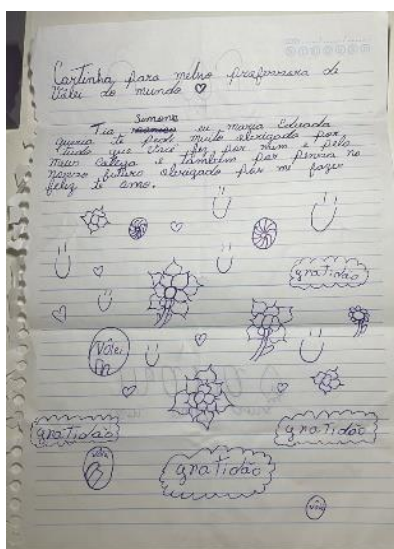 Cartinha para melho professora de
Vôlei do mundo
Simone
Tia eu maria Eduarda
queria te pedi muito obrigada por
tudo que você fez por mim e pelo
meus colega e também por pensa no
nosso futuro obrigado por mi fazer
feliz te amo.
gratidão
Vôlei
gratidão
gratidão
Vôlei
gratidão
Vôlei